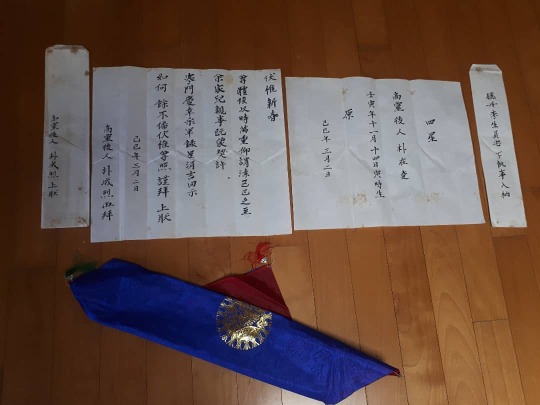 李生員宅 下執事入納
四星
高靈後人 朴在
壬寅年十一月十四日 時生
原
己巳年 三月二日
伏惟新春
尊體候以時萬重仰溯 之至
家兒親事託 契許
門慶幸 單錄呈涓吉回示
如何 餘不備伏惟尊照謹拜 上狀
己巳年 三月二日
高靈後人 朴成照 拜
高靈後人 朴成照上狀